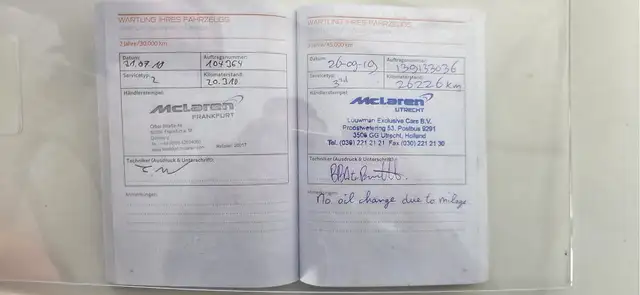 WARTUNG IHRES FAHRZEUGS
2 Jahre/30.000 km
Datum:
Auftragsnummer:
31.07.18
104364
Servicetyp:
Kilometerstand:
2
20.310
Händlerstempel:
McLaren
FRANKFURT
Techniker (Ausdruck & Unterschrift):
Anmerkungen:
WARTUNG IHRES FAHRZEUGS
Datum:
Auftragsnummer:
26-09-19
139133036
Servicetyp:
Kilometerstand:
3rd
26226 km
Händlerstempel:
McLaren
UTRECHT
Louwman Exclusive Cars B.V.
Proostwetering 53, Postbus 9291
3506 GG Utrecht, Holland
Tel. (030) 221 21 21 Fax (030) 221 21 30
Techniker (Ausdruck & Unterschrift):
Anmerkungen:
No oil change due to milage